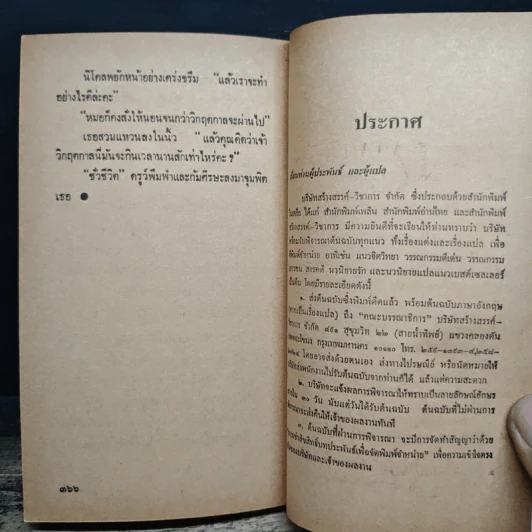 นิโคลพยักหน้าอย่างเคร่งขรึม "แล้วเราจะทำ
อย่างไรดีล่ะคะ"
"หมอก็คงสั่งให้นอนจนกว่าวิกฤตกาลจะผ่านไป"
เธอสวมแหวนลงในนิ้ว "แล้วคุณคิดว่าเจ้า
วิกฤตกาลนี่มันจะกินเวลานานสักเท่าไหร่คะ?"
"ชั่วชีวิต" ดรูว์พึมพำและก้มศีรษะลงมาจุมพิต
เธอ ●
๓๖๖
ประกาศ
ท่านผู้ประพันธ์ และผู้แปล
บริษัทสร้างสรรค์-วิชาการ จำกัด ซึ่งประกอบด้วยสำนักพิมพ์
ได้แก่ สำนักพิมพ์เพลิน สำนักพิมพ์อ่านไทย และสำนักพิมพ์
สร้างสรรค์-วิชาการ มีความยินดีที่จะเรียนให้ท่านทราบว่า บริษัท
พร้อมรับพิจารณาต้นฉบับทุกแนว ทั้งเรื่องแต่งและเรื่องแปล เพื่อ
จัดพิมพ์จำหน่าย อาทิเช่น แนวจิตวิทยา วรรณกรรมดีเด่น วรรณกรรม
สารคดี นวนิยายรัก และนวนิยายแปลแนวเบสต์เซลเลอร์
เป็นต้น โดยมีรายละเอียดดังนี้
๑. ส่งต้นฉบับซึ่งพิมพ์ดีดแล้ว พร้อมต้นฉบับภาษาอังกฤษ
เป็นเรื่องแปล) ถึง "คณะบรรณาธิการ" บริษัทสร้างสรรค์-
วิชาการ จำกัด ๘๙๑ สุขุมวิท ๒๒ (สายน้ำทิพย์) แขวงคลองตัน
กรุงเทพมหานคร ๑๐๑๑๐ โทร. ๒๕๙-๑๓๕๓-๔,๒๕๘-
โดยอาจส่งด้วยตนเอง ส่งทางไปรษณีย์ หรือนัดหมายให้
บริษัทส่งพนักงานไปรับต้นฉบับจากท่านก็ได้ แล้วแต่ความสะดวก
๒. บริษัทจะแจ้งผลการพิจารณาให้ทราบเป็นลายลักษณ์อักษร
ภายใน ๓๐ วัน นับแต่วันได้รับต้นฉบับ ต้นฉบับที่ไม่ผ่านการ
พิจารณาจะส่งคืนให้เจ้าของผลงานทันที
๓. ต้นฉบับที่ผ่านการพิจารณา จะมีการจัดทำสัญญาว่าด้วย
ค่าลิขสิทธิ์บทประพันธ์เพื่อจัดพิมพ์จำหน่าย" เพื่อความเข้าใจตรง
ของบริษัทและเจ้าของผลงาน